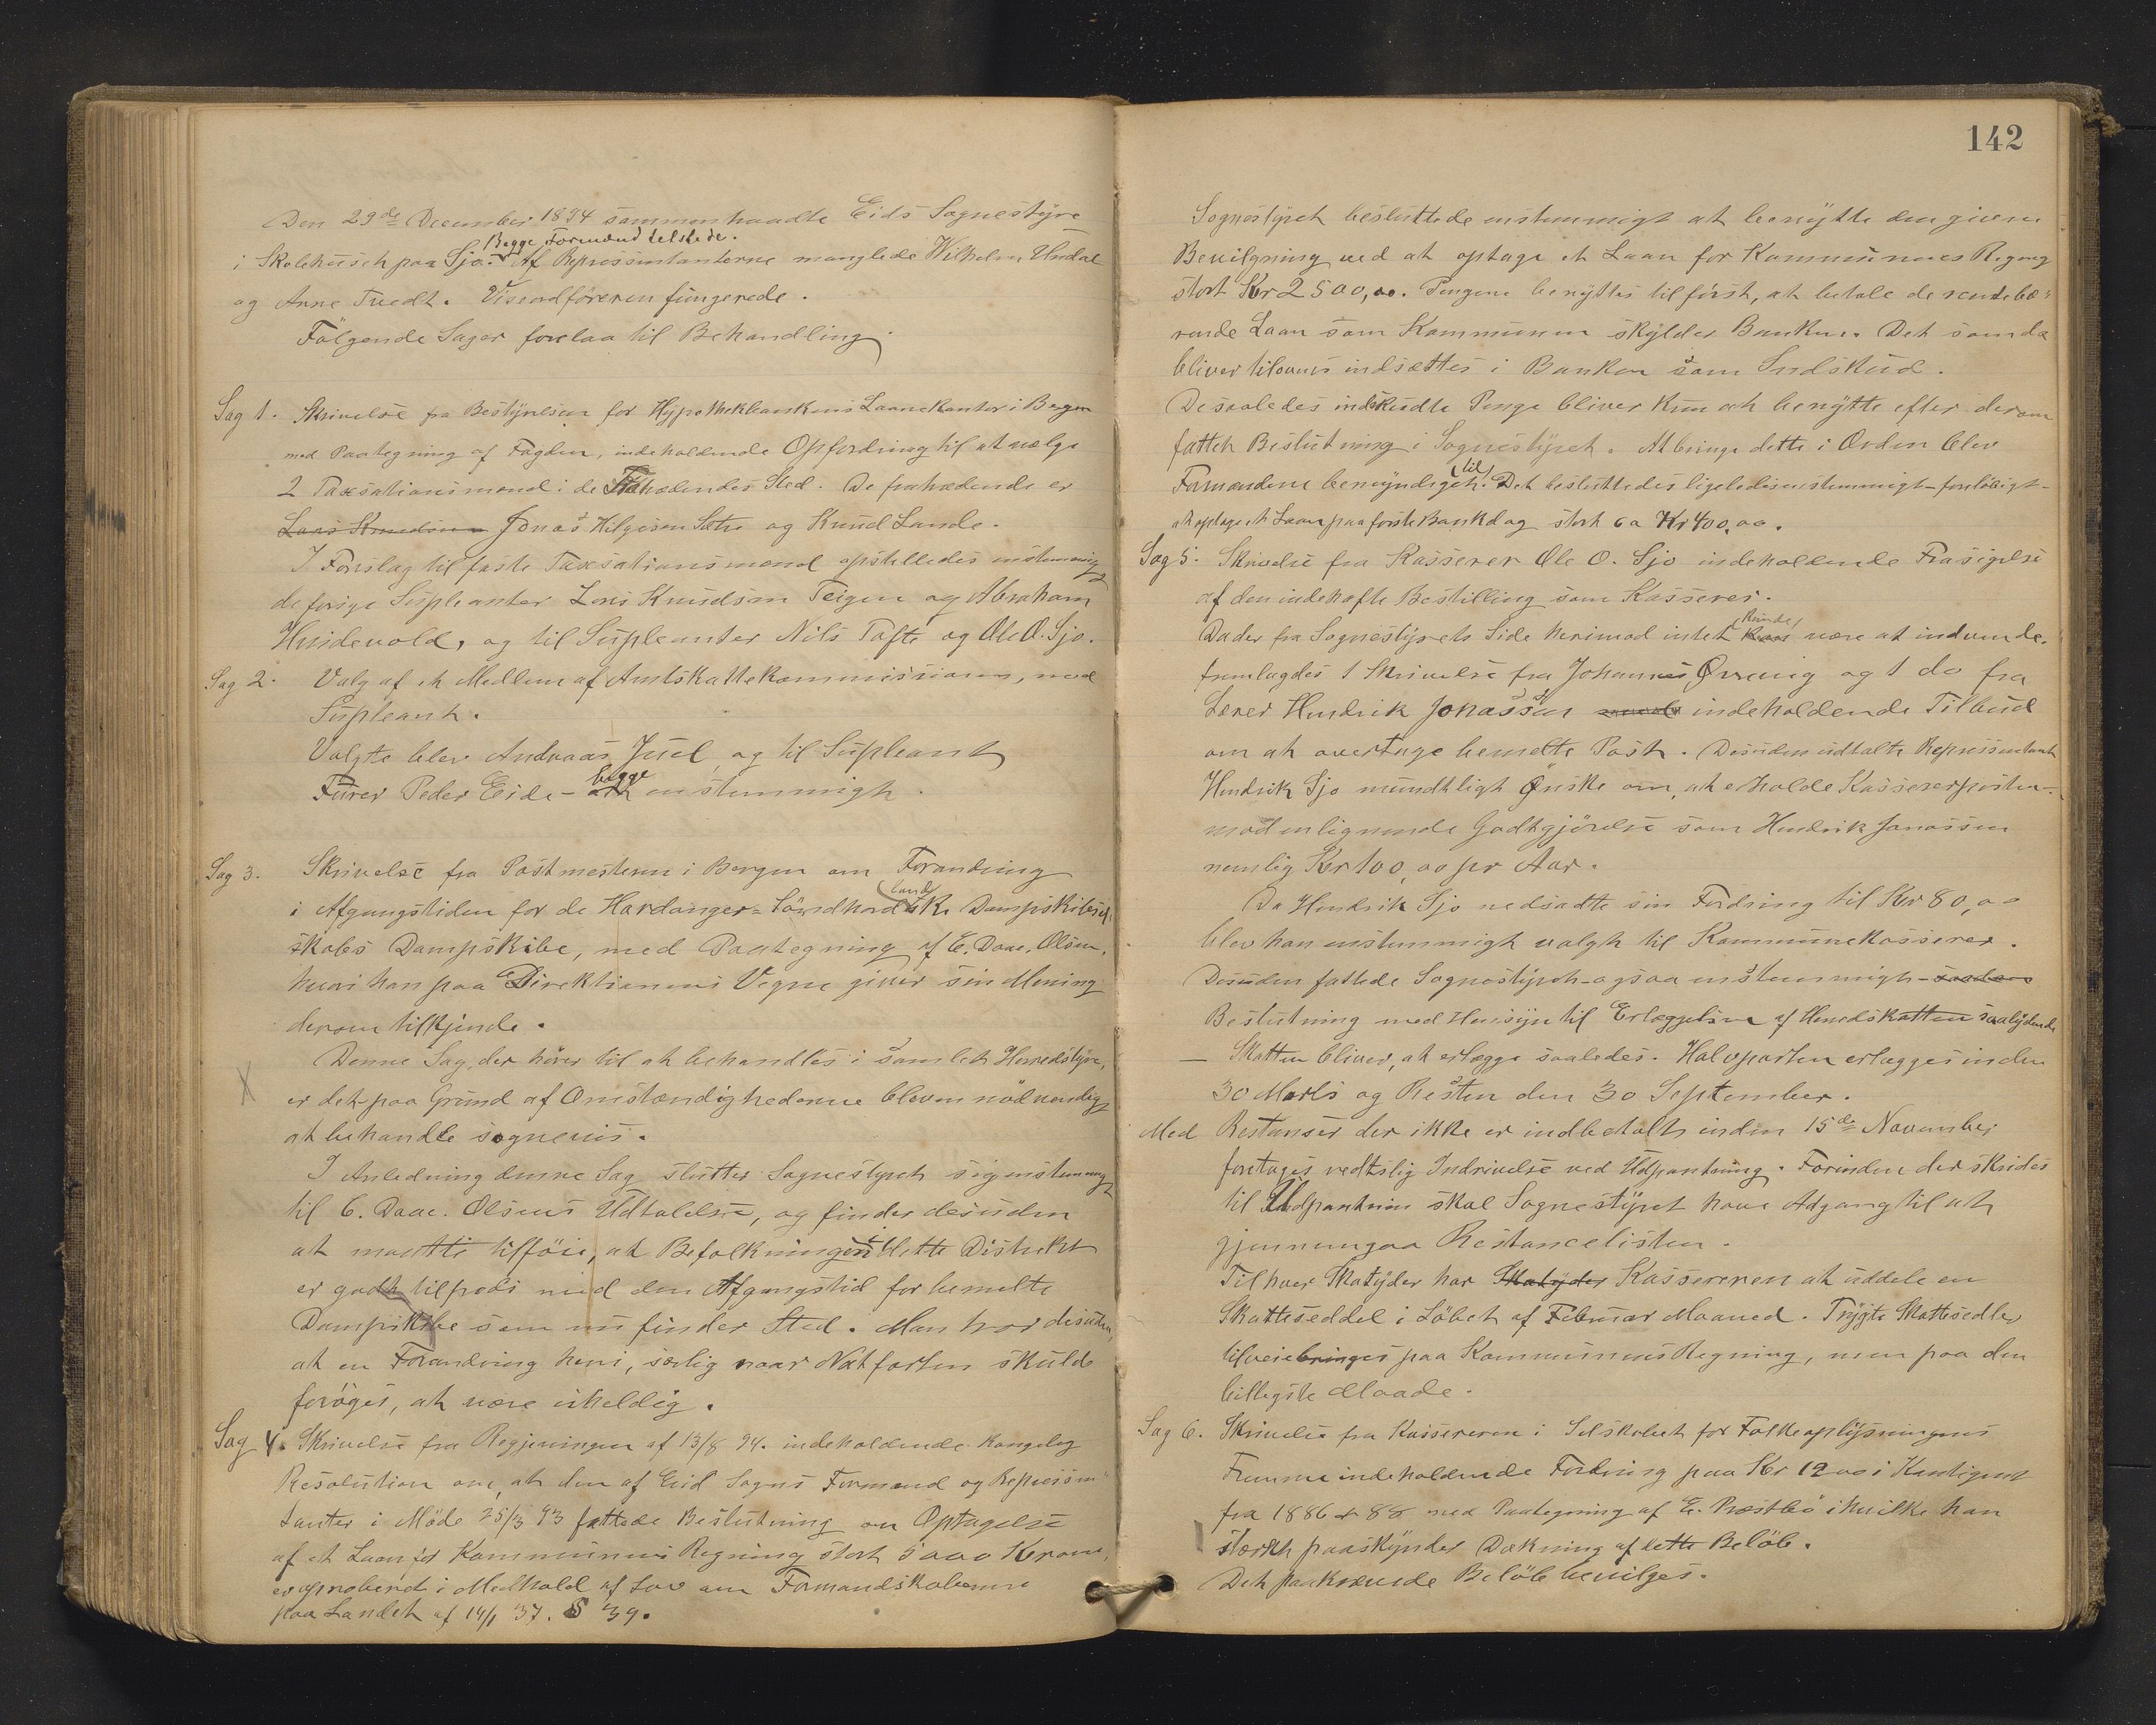 Den 29de December 1894 sammenhaadte Eids Sognestyre
Begge Formænd tilstede.
i Skolehuset paa Sjo. Af Repræsentanterne manglede Wilhelm Undal
og Arne Tvedt. Viseordföreren fungerede.
Fölgende Sager forelaa til Behandling
Sag 1. Skrivelse fra Bestyrelsen for Hypothekbankens Laanekontor i Bergen
med Paategning af Fogden, indeholdende Opfordring til at vælge
2 Taxsationsmænd i de Fratrædendes Sted. De fratrædende er
Lars Knudsen Jonas Helgesen Sætre og Knud Lande.
I Forslag til faste Taxsationsmænd opstilledes enstemmig
de forige Supleanter Lars Knudsen Teigen og Abraham
Hvidevold, og til Supleanter Nils Tofte og Ole O. Sjo.
Sag 2. Valg af et Medlem af Amtskattekommissionen, med
Supleant.
Valgte blev Andreas Juel og til Supleant
Furer Peder Eide - begge enstemmigh.
Sag 3. Skrivelse fra Postmesteren i Bergen om Forandring
land
i Afgangstiden for de Hardanger-Söndhordske Dampskibssel.
skabs Dampskibe, med Paategning af C. Daae. Olsen,
hvori han paa Direktionens Vegne giver sin Mening
derom tilkjende.
Denne Sag, der hörer til at behandles i samlet Herredstyre,
er det paa Grund af Omstændighederne bleven nödvendig
at behandle sognevis.
I Anledning denne Sag slutter Sognestyret sig enstemmig
til C. Daae. Olsens Udtalelse, og finder desuden
at maatte tilföie, at Befolkningen i dette Distrikt
er godt tilfreds med den Afgangstid for bemelte
Dampskibe som nu finder Sted. Man tror desuden,
at en Forandring heri, særlig naar Natfarten skulde
foröges, at være uheldig.
Sag 4. Skrivelse fra Regjeringen af 13/8 94. indeholdende kongelig
Resolution om, at den af Eid Sogns Formænd og Repræsen-
tanter i Möde 25/3 93 fattede Beslutning om Optagelse
af et Laan for Kommunens Regning stort 5000 Kroner,
er aprobered i Medhold af Lov om Formandskaberne
paa Landet af 14/1 37. § 39.
142
Sognestyret besluttede enstemmigt at benytte den givne
Bevilgning ved at optage et Laan for Kommunens Regning
stort Kr 2500,00. Pengene benyttes til først, at betale de rentebæ-
rende Laan som Kommunen skylder Banken. Det som da
bliver tilovers indsættes i Banken som Indskud.
De saaledes indskudte Penge bliver kun at benytte efter derom
fattet Beslutning i Sognestyret. At bringe dette i Orden blev
til
Formændene bemyndiget. Det besluttedes ligeledes enstemmigt - foreløbigt -
at optage et Laan paa første Bankdag stort ca Kr 400,00.
Sag 5. Skrivelse fra Kasserer Ole O. Sjo indeholdende Frasigelse
af den indehafte Bestilling som Kasserer.
kunde
Da der fra Sognestyrets Side herimod intet kan være at indvende,
fremlagdes 1 Skrivelse fra Johannes Qvævig og 1 do fra
Lærer Hendrik Jonassen indeholdende Tilbud
om at overtage bemelte Post. Desuden udtalte Repræsentant
Hendrik Sjo mundtligt Ønske om, at erholde Kassererposten -
mod en lignende Godtgjörelse som Hendrik Jonassen
nemlig Kr 100,00 pr Aar.
Da Hendrik Sjo nedsadte sin Fordring til Kr 80,00
blev han enstemmigh valgt til Kommunekasserer.
Desuden fattede Sognestyret - ogsaa enstemmigh - saadan
Beslutning med Hensyn til Erlæggelsen af Herredskatten saalydende
— Skatten bliver, at erlægge saaledes. Halvparten erlægges inden
30 Marts og Resten den 30 September.
Med Restanser der ikke er indbetalt inden 15de November
foretages retslig Indrivelse ved Udpantning. Forinden der skrides
til Udpantnin skal Sognestyret have Adgang til at
gjennemgaa Restancelisten.
Til hver Skatyder har Skatyder Kassereren at uddele en
Skatteseddel i Löbet af Februar Maaned. Trygte Skattesedler
tilveiebringes paa Kommunens Regning, men paa den
billigste Maade.
Sag 6. Skrivelse fra Kassereren i Selskabet for Folkeoplysningens
Fremme indeholdende Fordring paa Kr 12 00 i Kontigent
fra 1886 & 88 med Paategning af E. Præstbö i hvilke han
stærkt paaskynder Dækning af dette Belöb.
Det paakrævede Belöb bevilges.